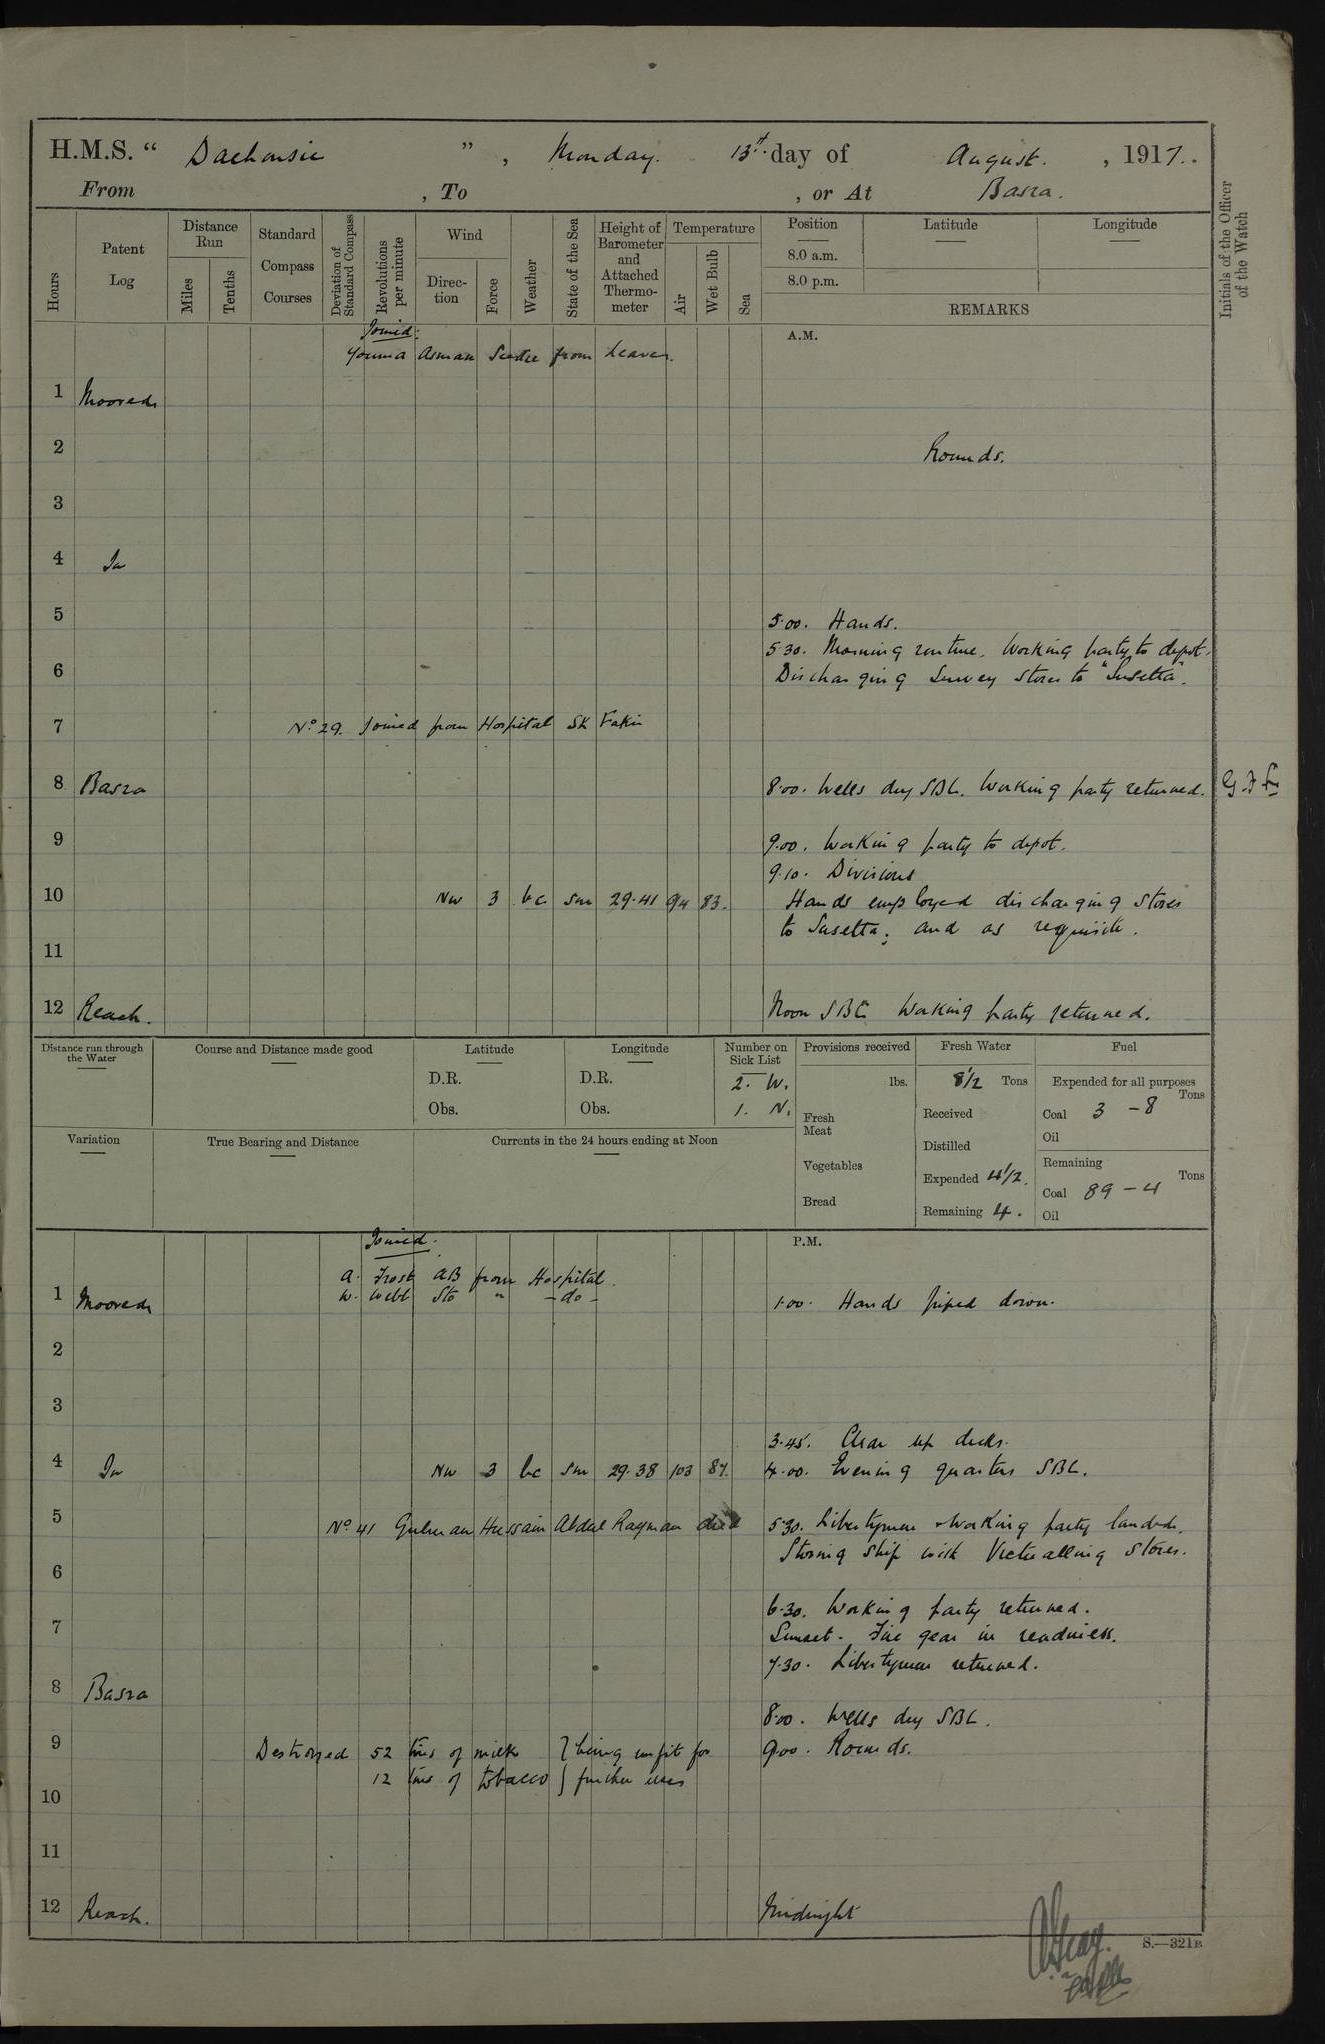 H.M.S. “ Dalhousie ” , Monday. 13th day of August. , 1917.
From , To , or At Basra.
Hours
Patent Log
Distance Run
Miles
Tenths
Standard Compass Courses
Deviation of Standard Compass
Revolutions per minute
Wind
Direction
Force
Weather
State of the Sea
Height of Barometer and Attached Thermometer
Temperature
Air
Wet Bulb
Sea
Position
8.0 a.m.
8.0 p.m.
Latitude
Longitude
REMARKS
Initials of the Officer of the Watch
A.M.
Joined:
Asman Seedie from leave.
1 Moored
2 Rounds.
3
4 In
5 5.00. Hands.
5.30. Morning routine. Working party to depot.
6 Discharging Survey stores to "Susetta".
7 No 29. Joined from Hospital SK Fakir
8 Basra 8.00. Wells dry SBC. Working party returned.
9 9.00. Working party to depot.
9.10. Divisions
10 NW 3 bc sm 29.41 94 83. Hands employed discharging stores
to Susetta; and as requisite.
11
12 Reach. Noon SBC Working party returned.
Distance run through the Water
Course and Distance made good
Latitude
D.R.
Obs.
Longitude
D.R.
Obs.
Number on Sick List
2. W.
1. N.
Provisions received
lbs.
Fresh Meat
Vegetables
Bread
Fresh Water
8 1/2 Tons
Received
Distilled
Expended 4 1/2.
Remaining 4.
Fuel
Expended for all purposes
Tons
Coal 3 – 8
Oil
Remaining
Tons
Coal 89 – 4
Oil
Variation
True Bearing and Distance
Currents in the 24 hours ending at Noon
P.M.
Joined.
A. Frost AB from Hospital.
W. Webb Sto " – do –
1 Moored 1.00. Hands piped down.
2
3
3.45. Clear up decks.
4 In NW 3 bc sm 29.38 103 87. 4.00. Evening quarters SBC.
5 No 41 Hussain Abdul Rayman died 5.30. Libertymen & working party landed.
Storing ship with Victualling stores.
6
6.30. Working party returned.
7 Sunset. Fire gear in readiness.
7.30. Libertymen returned.
8 Basra
8.00. Wells dry SBC.
9 Destroyed 52 tins of milk } being unfit for 9.00. Rounds.
12 tins of tobacco } further use
10
11
12 Reach. Midnight
S.—321B